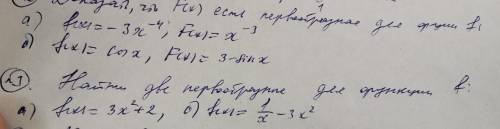 Доказать, что F(x) есть первообразное для функции f:
а) f(x) = -3x⁻⁴, F(x) = x⁻³
б) f(x) = cos x, F(x) = 3 - sin x
Найти две первообразные для функции f:
а) f(x) = 3x²+2, б) f(x) = 1/x - 3x²